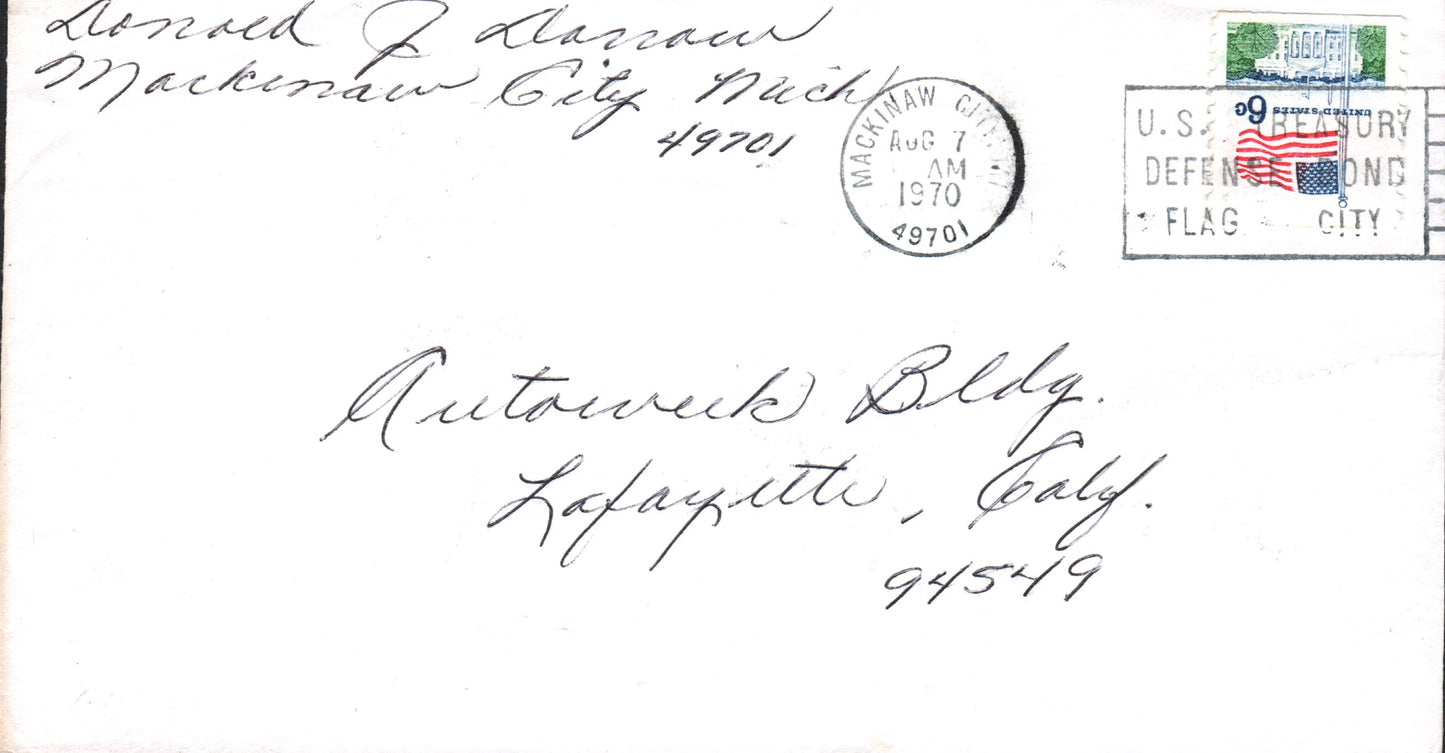 Donald J Danow
Mackinaw City Mich
49701
MACKINAW CITY,
AUG 7
AM
1970
49701
U.S. TREASURY
DEFENSE BOND
FLAG CITY
6c
UNITED STATES
Autoweek Bldg.
Lafayette, Calif.
94549